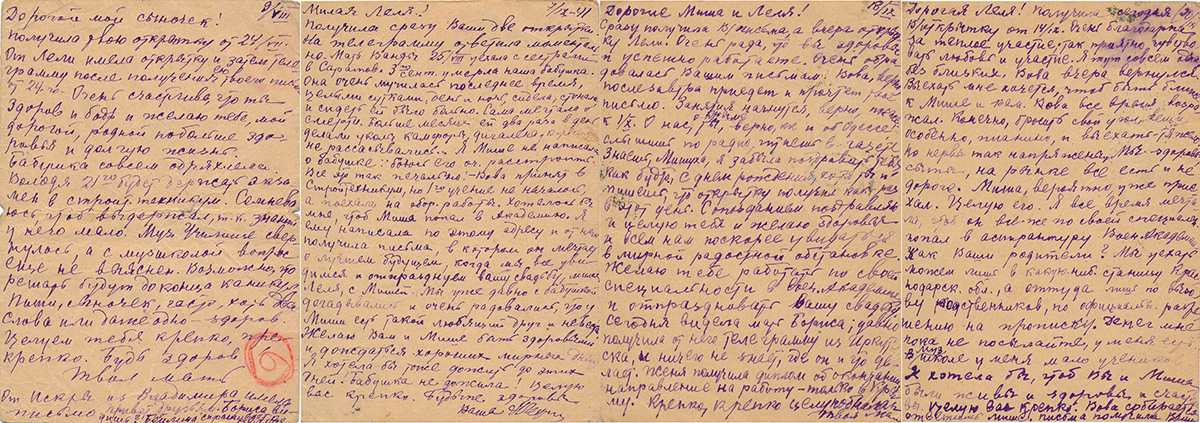 Дорогой мой сыночек! 9/VIII
Получила твою открытку от 24/VII.
От Лели имела открытку и затем теле-
грамму после получения твоего письма
от 24го. Очень счастлива, что ты
здоров и бодр и желаю тебе, мой
дорогой, родной побольше здо-
ровья и долгую жизнь.
Бабушка совсем одряхлела.
Володя 21го будет держать экза-
мен в строит. техникум. Сомневаю
ось, чтоб выдержал, т.к. знаний
у него мало. Муз. Училище свер-
нулось, а с музшколой вопрос
еще не выяснен. Возможно, что
решать будут до конца каникул.
Пиши, сыночек, часто, хоть два
слова или даже одно - здоров.
Целуем тебя крепко, крепко
крепко. Будь здоров
Твоя мать
6
От Искры из Владимира имела
письмо
Милая Леля! 7/IX-41
Получила сразу Ваши две открытки.
На телеграмму ответила моментально.
Мать Ванды 25/VIII уехала с сестрой
в Саратов. 3 сент. умерла наша бабушка.
Она очень мучилась последнее время,
целыми сутками, день и ночь сидела, стонала
и сидеть ей было больно.
слегои. Больше месяца ей два раза в день
делали уколы камфоры, дигалена,
не рассасывались. Я Мише не написала
о бабушке: боюсь его оч. расстроить.
Все это так печально! - Вова принят в
Стройтехникум, но 1го учение не началось,
а поехали на обор. работы. Хотелось бы
мне, чтоб Миша попал в Академию. Я
ему написала по этому адресу и от него
получила письма, в котором он мечтает
о лучшем будущем, когда мы все уви-
димся и отпразднуем вашу свадьбу, милая
Леля, с Мишей. Мы уже давно с бабушкой
догадывались и очень радовались, что у
Миши есть такой любящий друг и невеста
Желаю Вам и Мише быть здоровыми
и дождаться хороших мирных дней.
Я хотела бы тоже дожить до этих
дней. Бабушка не дожила! Целую
вас крепко. Будьте здоровы
Ваша
Дорогие Миша и Леля! 13/IX
Сразу получила письма, а вчера открыт-
ку Лели. Очень рада, что вы здоровы
и успешно работаете. Очень обра-
довалась Вашим письмам. Вова,
послезавтра приедет и прочтет твое
письмо. Занятия начнутся, верно, тоже
к 1/X. О нас, верно, как и об Одессе
слышите по радио, читаете в газете.
Знаешь, Мишуха, я забыла поздравить тебя,
как будто, с днем рожденья, хотя ты и
пишешь, что открытку получил как раз
в этот день. С опозданием поздравляю
и целую тебя и желаю здоровья
и всем нам поскорее увидеться
в мирной радостной обстановке.
Желаю тебе работать по своей
специальности в Воен. Академии
и отпраздновать Вашу свадьбу
Сегодня видела мать Бориса; давно
получила от него телеграмму из Иркут-
ска, и ничего не знает, где он и что де-
лает. Женя получила диплом об окончании
направление на работу - только в
му. Крепко, крепко целую
Дорогая Леля! Получила сегодня 20/IX
открытку от 14/IX. Очень благодарна
за теплое участие; так приятно, чувство-
вать любовь и участие. Я тут совсем одна
без близких. Вова вчера вернулся.
Выехать мне хочется, чтоб быть ближе
к Мише и Вам. Вова все время, возра-
жал. Конечно, бросить свой угол, вещи,
особенно, пианино, и выехать - тяжело
но нервы так напряжены. Мы - здоровы
сыты, на рынке все есть и не
дорого. Миша, вероятно, уже прие-
хал. Целую его. Я все время мечта-
ла, чтоб он все-же по своей специальн.
попал в аспирантуру Воен. Академии
Как Ваши родители? Мы уехать
можем лишь в какую-нибудь станицу Крас-
нодарск. обл., а оттуда лишь по вызо-
ву родственников, по официальн. разре-
шению на прописку. Денег мне
пока не посылайте, у меня есть.
В муз. школе у меня мало учеников
Я хотела бы, чтоб Вы и Миша
были живы и здоровы, и счаст-
вы. Целую Вас крепко. Вова собирается
ответить Мише.